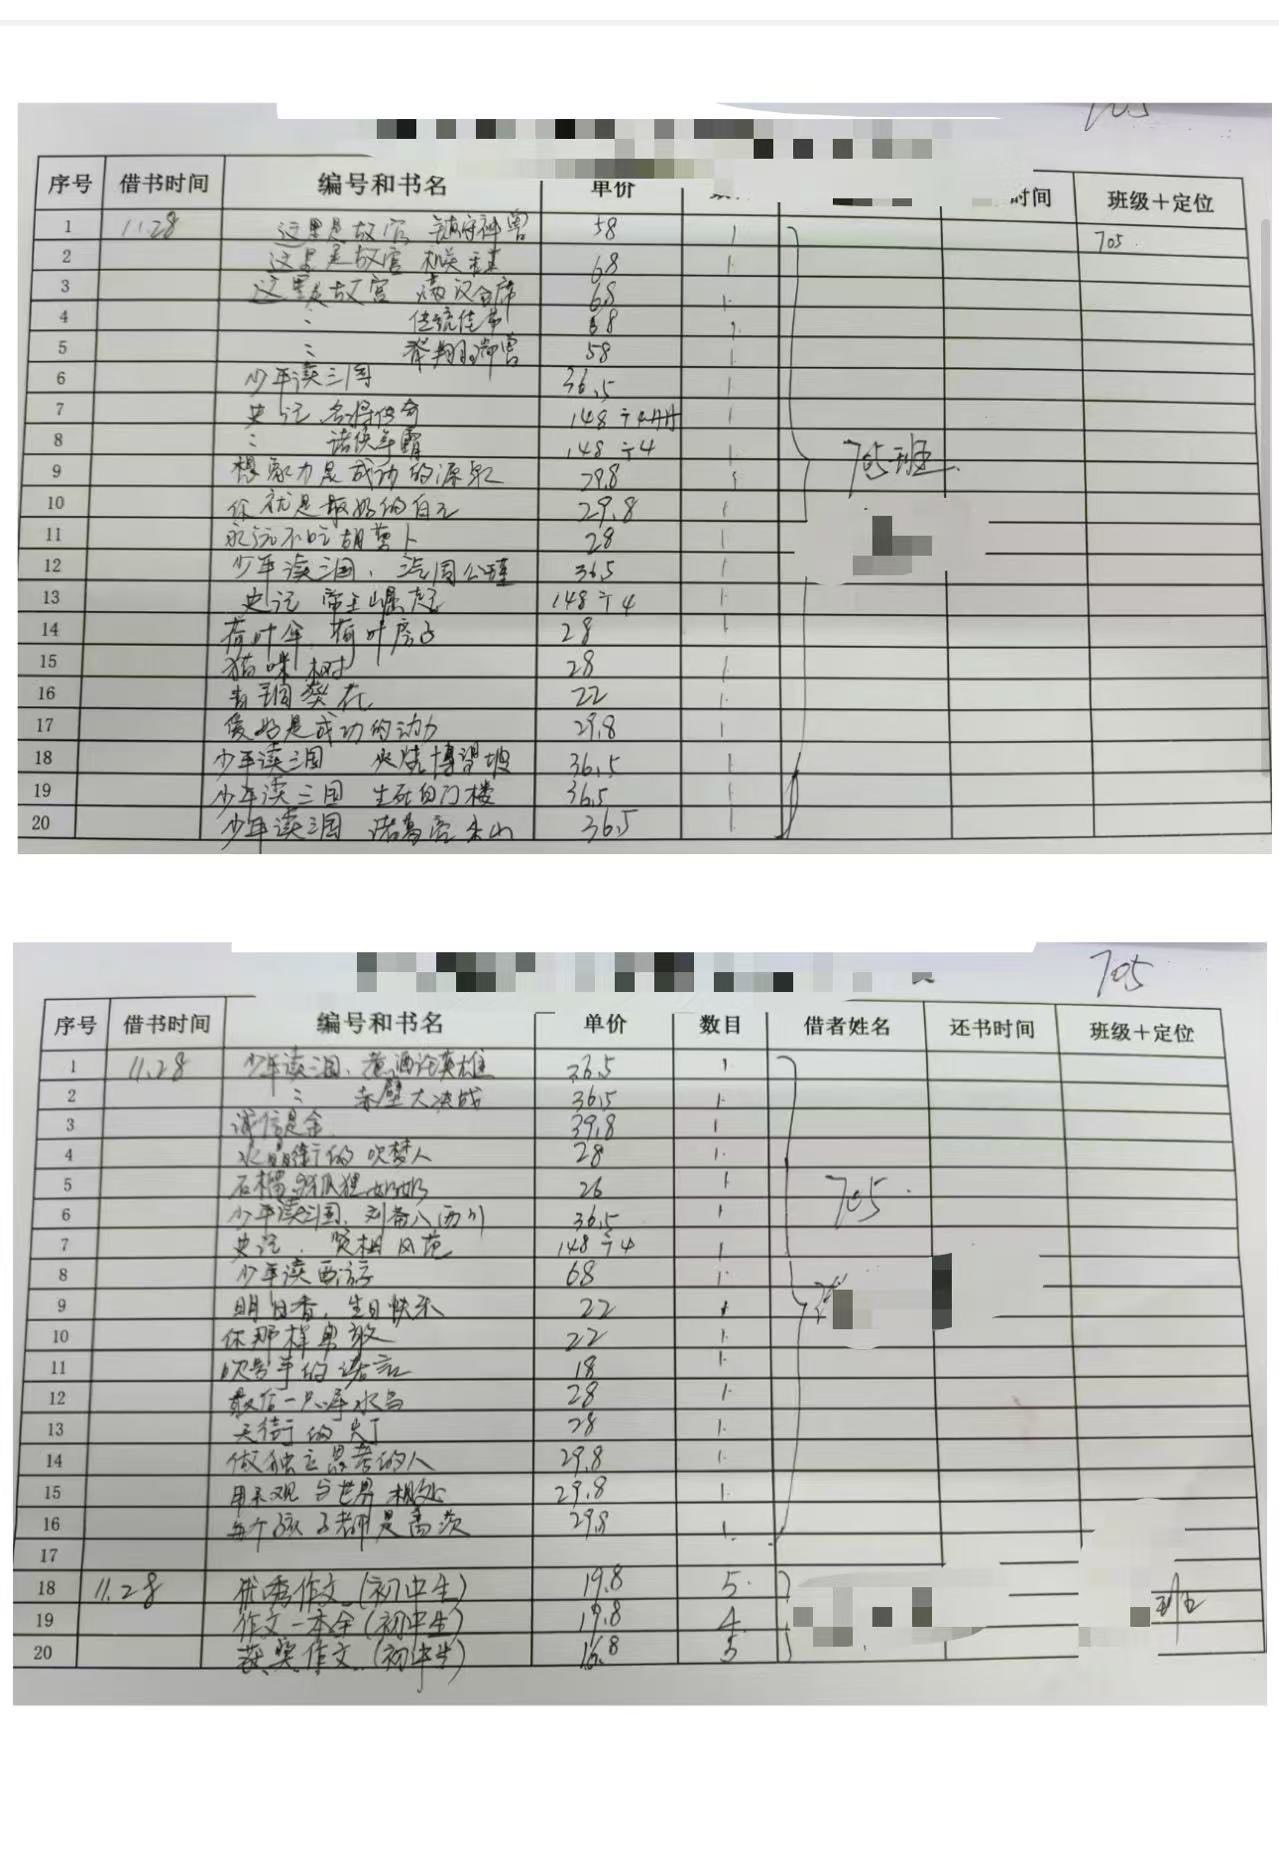 705
序号 借书时间 编号和书名 单价 时间 班级+定位
1 11.28 这里是故宫 镇守神兽 58 1 705
2 这里是故宫 机关 68 1
3 这里是故宫 满汉全席 68 1
4 〃 传统佳节 68 1
5 〃 58 1
6 少年读三国 36.5 1
7 史记 名将传奇 148÷4册 1
8 〃 诸侯争霸 148÷4 1
9 想象力是成功的源泉 29.8 1
705班
10 你就是最好的自己 29.8 1
11 永远不吃胡萝卜 28 1
12 少年读三国、 36.5 1
13 史记 帝王崛起 148÷4 1
14 荷叶伞、荷叶房子 28 1
15 猫咪树 28 1
16 青铜葵花 22 1
17 爱好是成功的动力 29.8 1
18 少年读三国 火烧博望坡 36.5 1
19 少年读三国 生死白门楼 36.5 1
20 少年读三国 诸葛亮出山 36.5 1
705
序号 借书时间 编号和书名 单价 数目 借者姓名 还书时间 班级+定位
1 11.28 少年读三国、煮酒论英雄 36.5 1
2 〃 赤壁大决战 36.5 1
3 诚信是金 39.8 1
4 水晶街的吹梦人 28 1
5 石榴 狐狸奶奶 26 1
705
6 少年读三国、刘备入西川 36.5 1
7 史记、贤相风范 148÷4 1
8 少年读西游 68 1
9 明日香,生日快乐 22 1
10 你那样勇敢 22 1
11 吹号手的诺言 18 1
12 最后一只 水鸟 28 1
13 天街的灯 28 1
14 做独立思考的人 29.8 1
15 用乐观与世界相处 29.8 1
16 每个孩子都是 29.8 1
17
18 11.28 优秀作文(初中生) 19.8 5 班
19 作文一本全(初中生) 19.8 4
20 获奖作文(初中生) 16.8 5